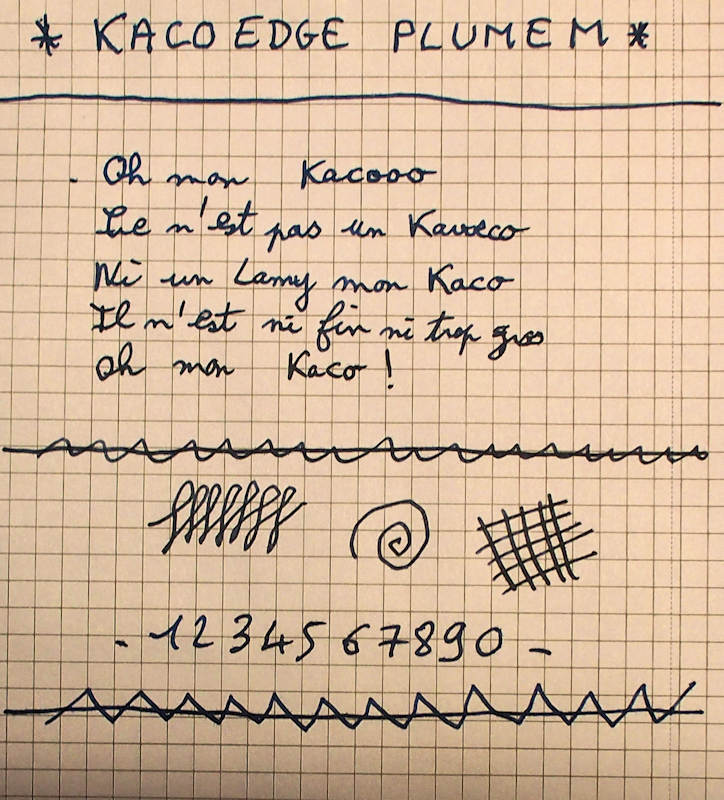 * KACO EDGE PLUME M *
. Oh mon Kacooo
Ce n'est pas un Kaweco
Ni un Lamy mon Kaco
Il n'est ni fin ni trop gros
Oh mon Kaco !
- 1234567890 -